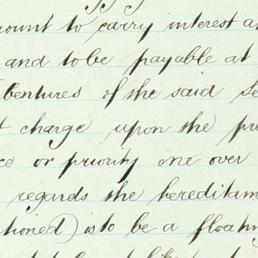 ount to carry interest a
and to be payable at
bentures of the said Se
t charge upon the pr
ce or priority one over
regards the hereditam
tioned) is to be a floatin